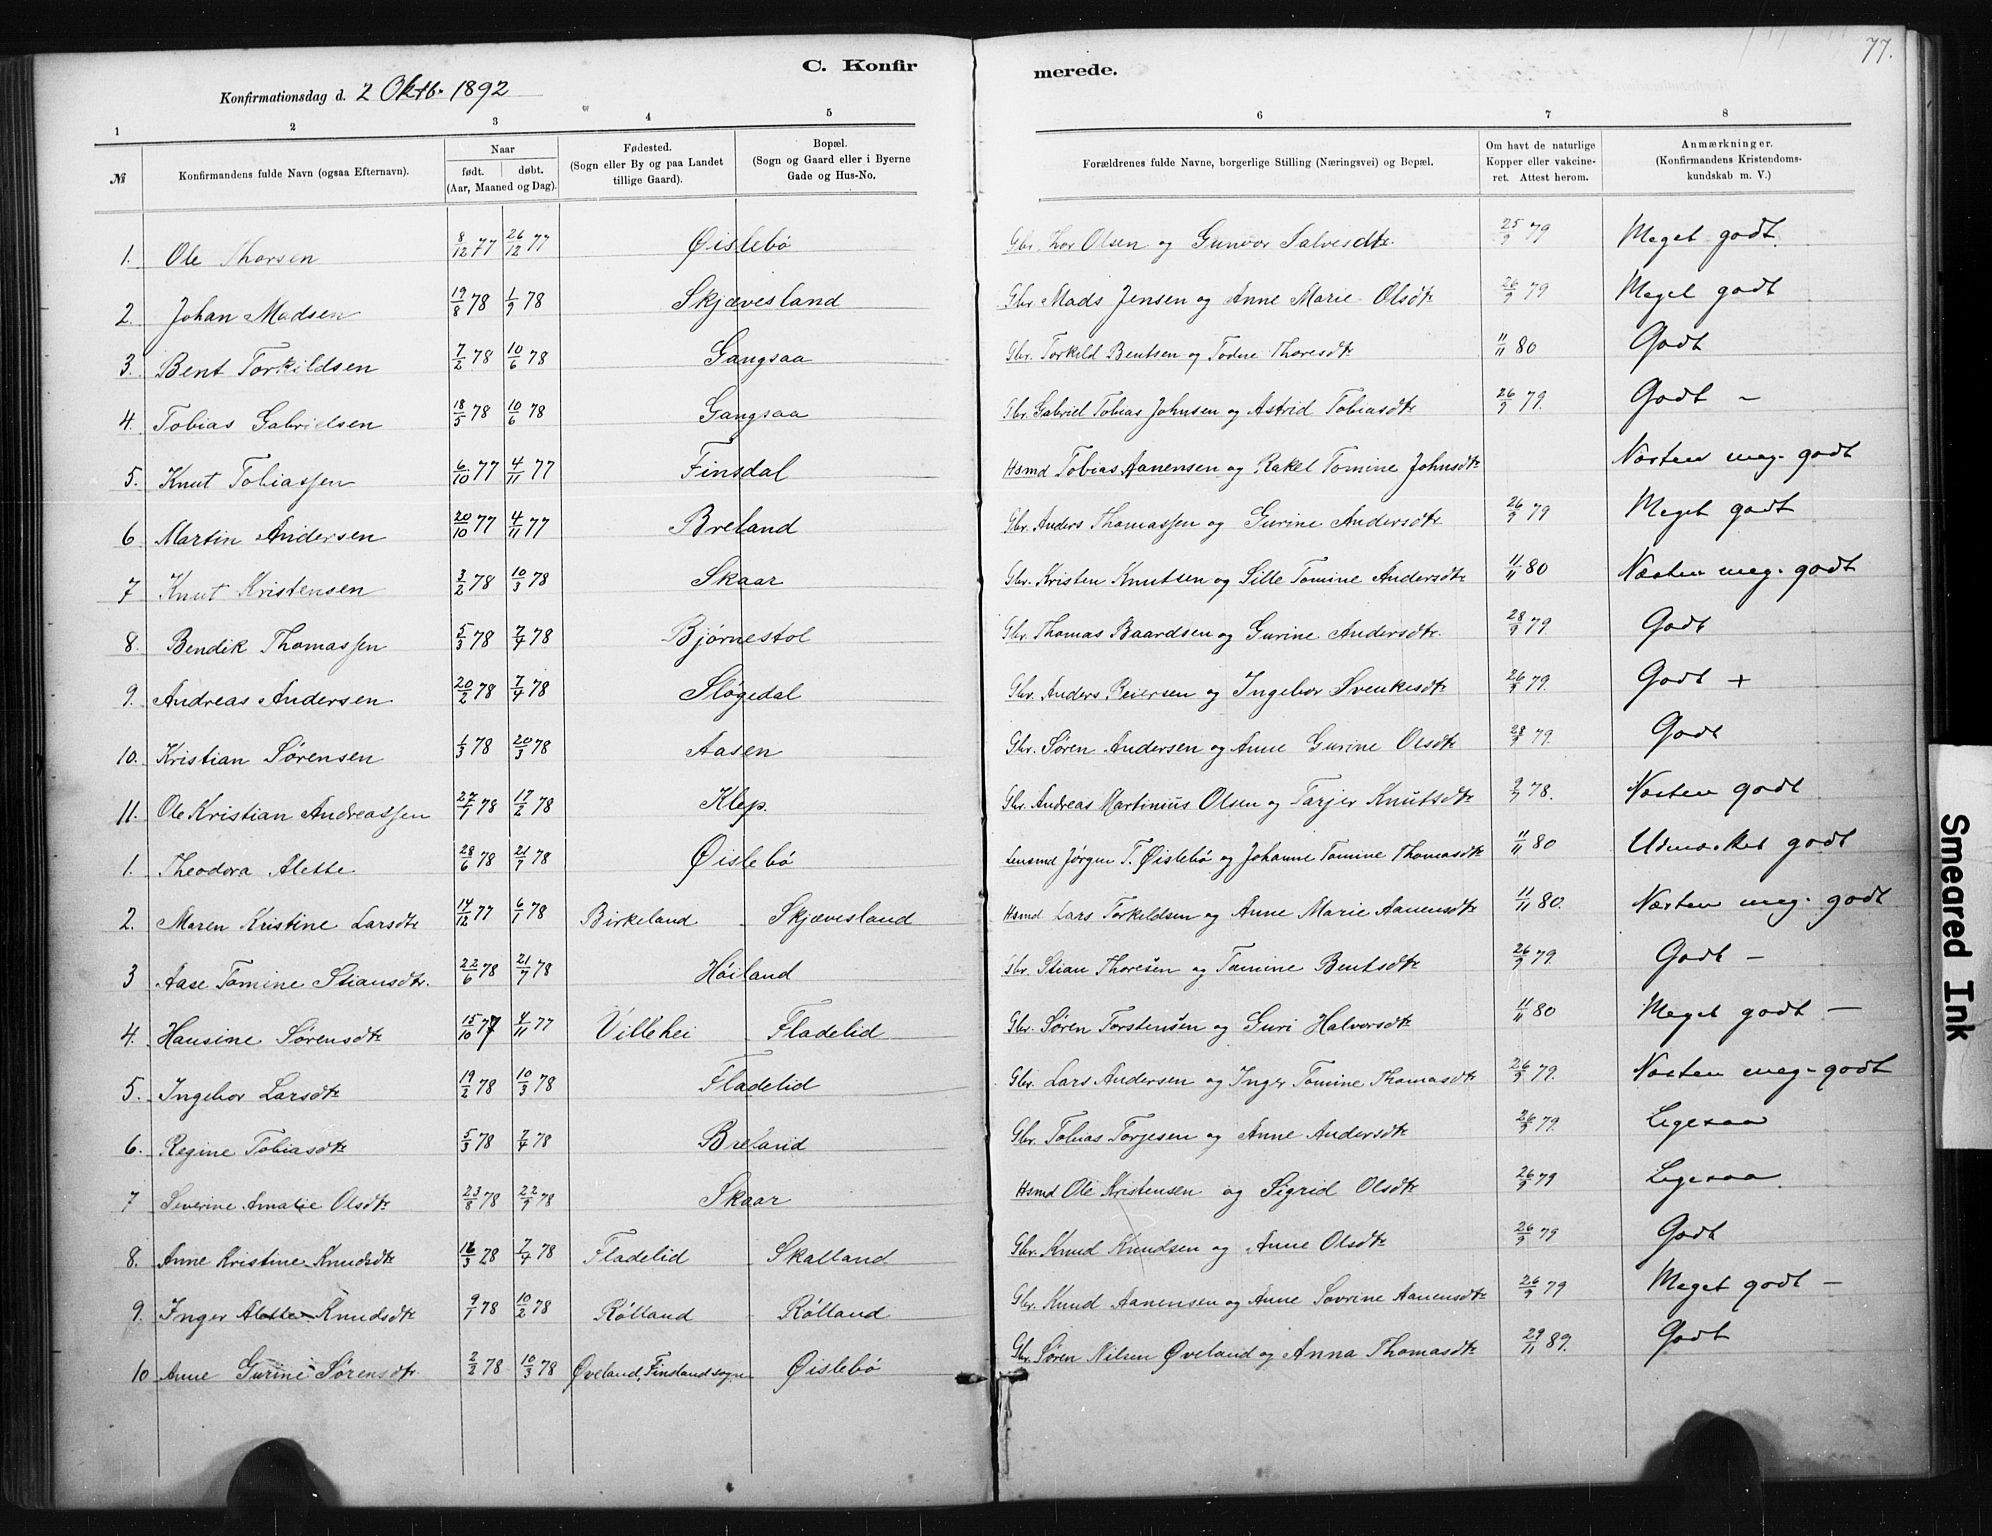 77.
C. Konfirmerede.
Konfirmationsdag d. 2 Oktb. 1892
1 2 3 4 5 6 7 8
№ Konfirmandens fulde Navn (ogsaa Efternavn). Naar født. døbt. (Aar, Maaned og Dag). Fødested. (Sogn eller By og paa Landet tillige Gaard). Bopæl. (Sogn og Gaard eller i Byerne Gade og Hus-No. Forældrenes fulde Navne, borgerlige Stilling (Næringsvei) og Bopæl. Om havt de naturlige Kopper eller vakcineret. Attest herom. Anmærkninger. (Konfirmandens Kristendomskundskab m. V.)
1. Ole Thorsen 8/12 77 26/12 77 Øislebö Gbr. Thor Olsen og Gunvor Salvesdtr. 25/9 79 Meget godt.
2. Johan Madsen 19/8 78 1/9 78 Skjævesland Gbr. Mads Jensen og Anne Marie Olsdtr 26/9 79 Meget godt
3. Bent Torkildsen 7/2 78 10/6 78 Gangsaa Gbr. Torkild Bentsen og Todne Thoresdtr 11/11 80 Godt
4. Tobias Gabrielsen 18/5 78 10/6 78 Gangsaa Gbr. Gabriel Tobias Johnsen og Astrid Tobiasdtr 26/9 79. Godt -
5. Knut Tobiassen 6/10 77 4/11 77 Finsdal Hsmd Tobias Aanensen og Rakel Tomine Johnsdtr Næsten meg. godt
6 Martin Andersen 20/10 77 4/11 77 Breland Gbr. Anders Thomassen og Gurine Andersdtr 26/9 79 Meget godt
7 Knut Kristensen 3/2 78 10/3 78 Skaar Gbr. Kristen Knutsen og Sille Tomine Andersdtr 11/11 80 Næsten meg. godt
8. Bendik Thomassen 5/3 78 7/4 78 Bjørnestol Gbr. Thomas Baardsen og Gurine Andersdtr. 28/9 79. Godt
9. Andreas Andersen 20/2 78 7/4 78 Sløgedal Gbr. Anders Reiersen og Ingebor Svenkesdtr 26/9 79. Godt +
10. Kristian Sørensen 1/3 78 20/3 78 Aasen Gbr. Søren Andersen og Anne Gurine Olsdtr 28/9 79. Godt
11. Ole Kristian Andreassen 27/1 78 17/2 78 Klep. Gbr. Andreas Martinius Olsen og Tarjer Knutsdtr 9/7 78. Næsten godt
1. Theodora Alette 28/6 78 21/7 78 Øislebö Lensmd Jörgen T. Øislebö og Johanne Tomine Thomasdtr 11/11 80 Udmærket godt
2. Maren Kristine Larsdtr 14/12 77 6/1 78 Birkeland Skjævesland Hsmd Lars Torkeldsen og Anne Marie Aanensdtr 11/11 80. Næsten meg. godt
3 Aase Tomine Stiansdtr. 22/6 78 21/7 78 Höiland Gbr. Stian Thoresen og Tomine Bentsdtr 26/9 79. Godt -
4. Hansine Sørensdtr 15/10 77 4/11 77 Villehei Fladelid Gbr. Søren Torstensen og Guri Halvorsdtr 11/11 80 Meget godt -
5. Ingebor Larsdtr 19/2 78 10/3 78 Fladelid Gbr. Lars Andersen og Inger Tomine Thomasdtr 26/9 79. Næsten meg. godt
6. Regine Tobiasdtr 5/3 78 7/4 78 Breland Gbr. Tobias Torjesen og Anne Andersdtr 26/9 79. Ligesaa
7 Severine Amalie Olsdtr 23/8 78 22/9 78 Skaar Hsmd Ole Kristensen og Sigrid Olsdtr 26/9 79 Ligesaa
8. Anne Kristine Knudsdtr 16/3 28 7/4 78 Fladelid Skalland Gbr. Knud Knudsen og Anne Olsdtr 26/9 79 Godt
9. Inger Alette Knudsdtr 9/1 78 10/2 78 Rölland Rölland Gbr. Knud Aanensen og Anne Sovrine Aanensdtr 26/9 79 Meget godt -
10 Anne Gurine Sørensdtr. 2/2 78 10/3 78 Øveland, Finsland sogn Øislebö Gbr. Søren Nilsen Øveland og Anna Thomasdtr 29/11 89. Godt
Smeared Ink